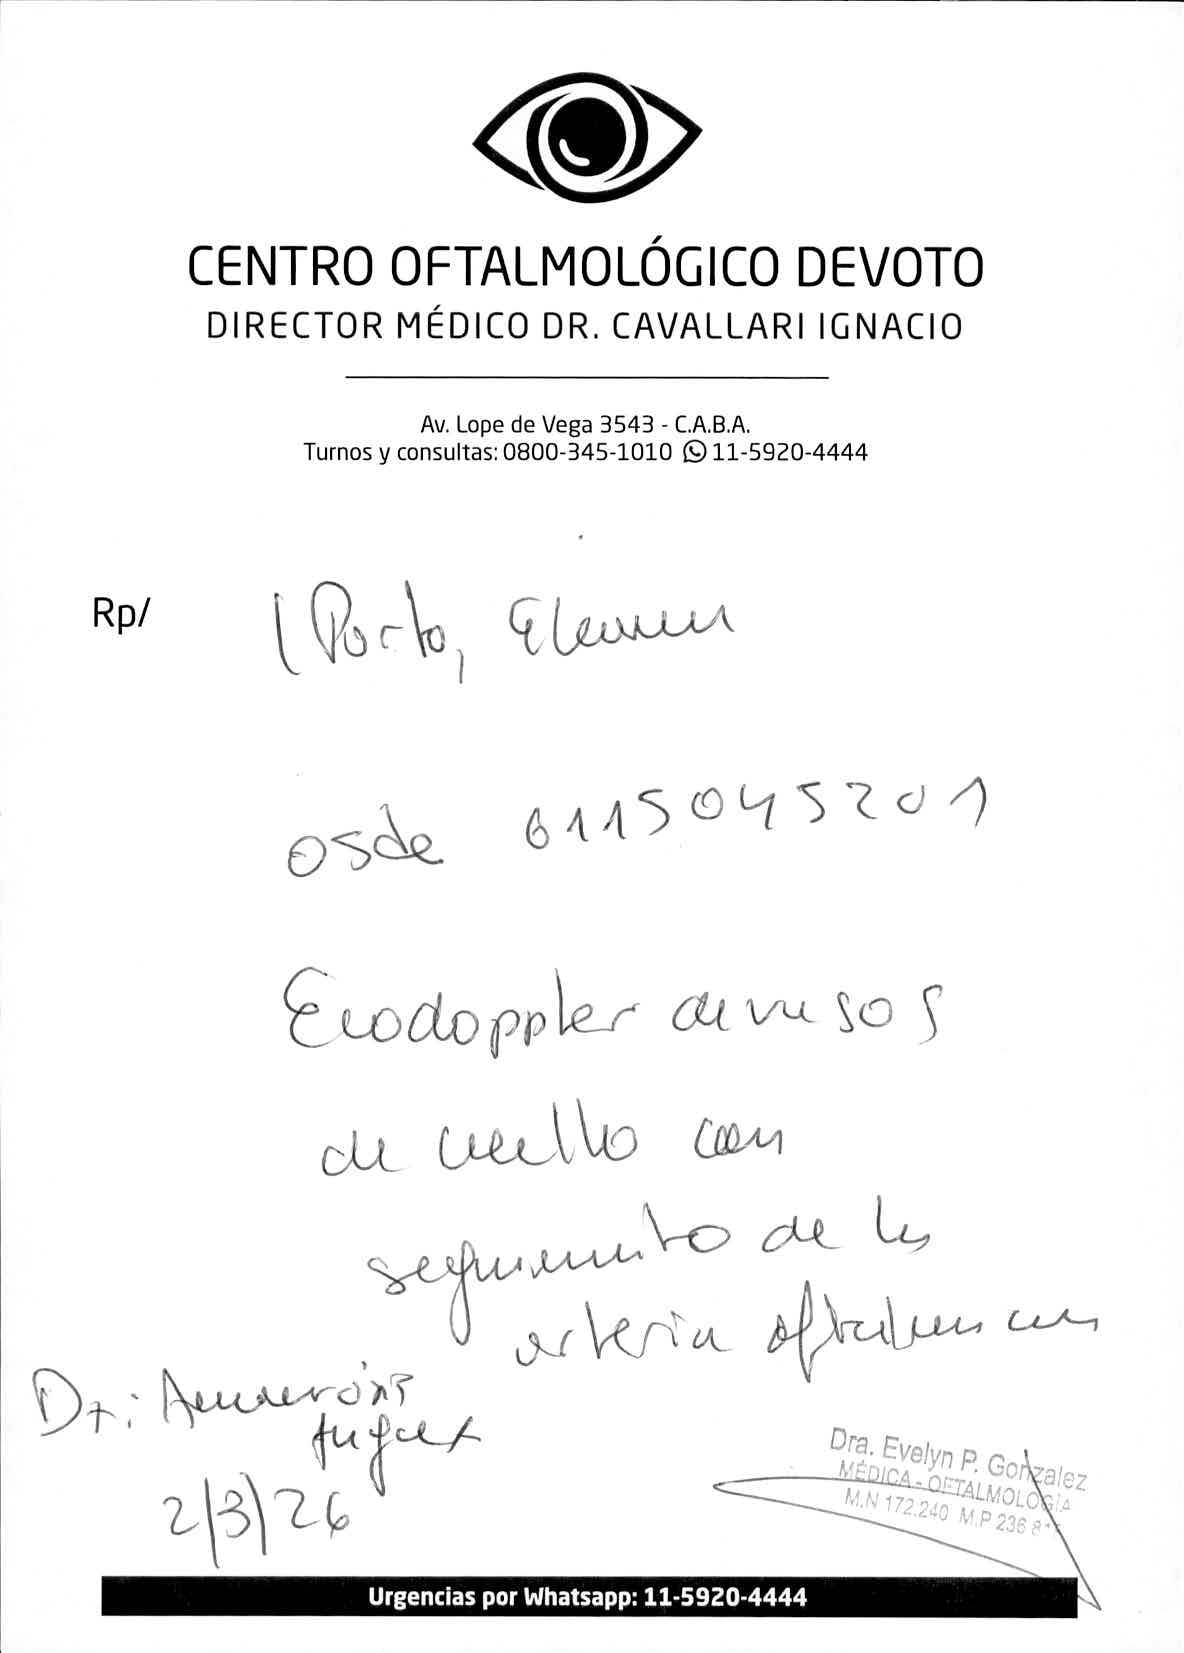 CENTRO OFTALMOLÓGICO DEVOTO
DIRECTOR MÉDICO DR. CAVALLARI IGNACIO
Av. Lope de Vega 3543 - C.A.B.A.
Turnos y consultas: 0800-345-1010 11-5920-4444
Rp/
Porto,
osde 6115045201
Ecodoppler de vasos
de cuello con
segmento de las
arteria oftalmicas
Dx: Amaurosis
fugax
2/3/26
Dra. Evelyn P. Gonzalez
MÉDICA - OFTALMOLOGÍA
M.N 172.240 M.P 236
Urgencias por Whatsapp: 11-5920-4444